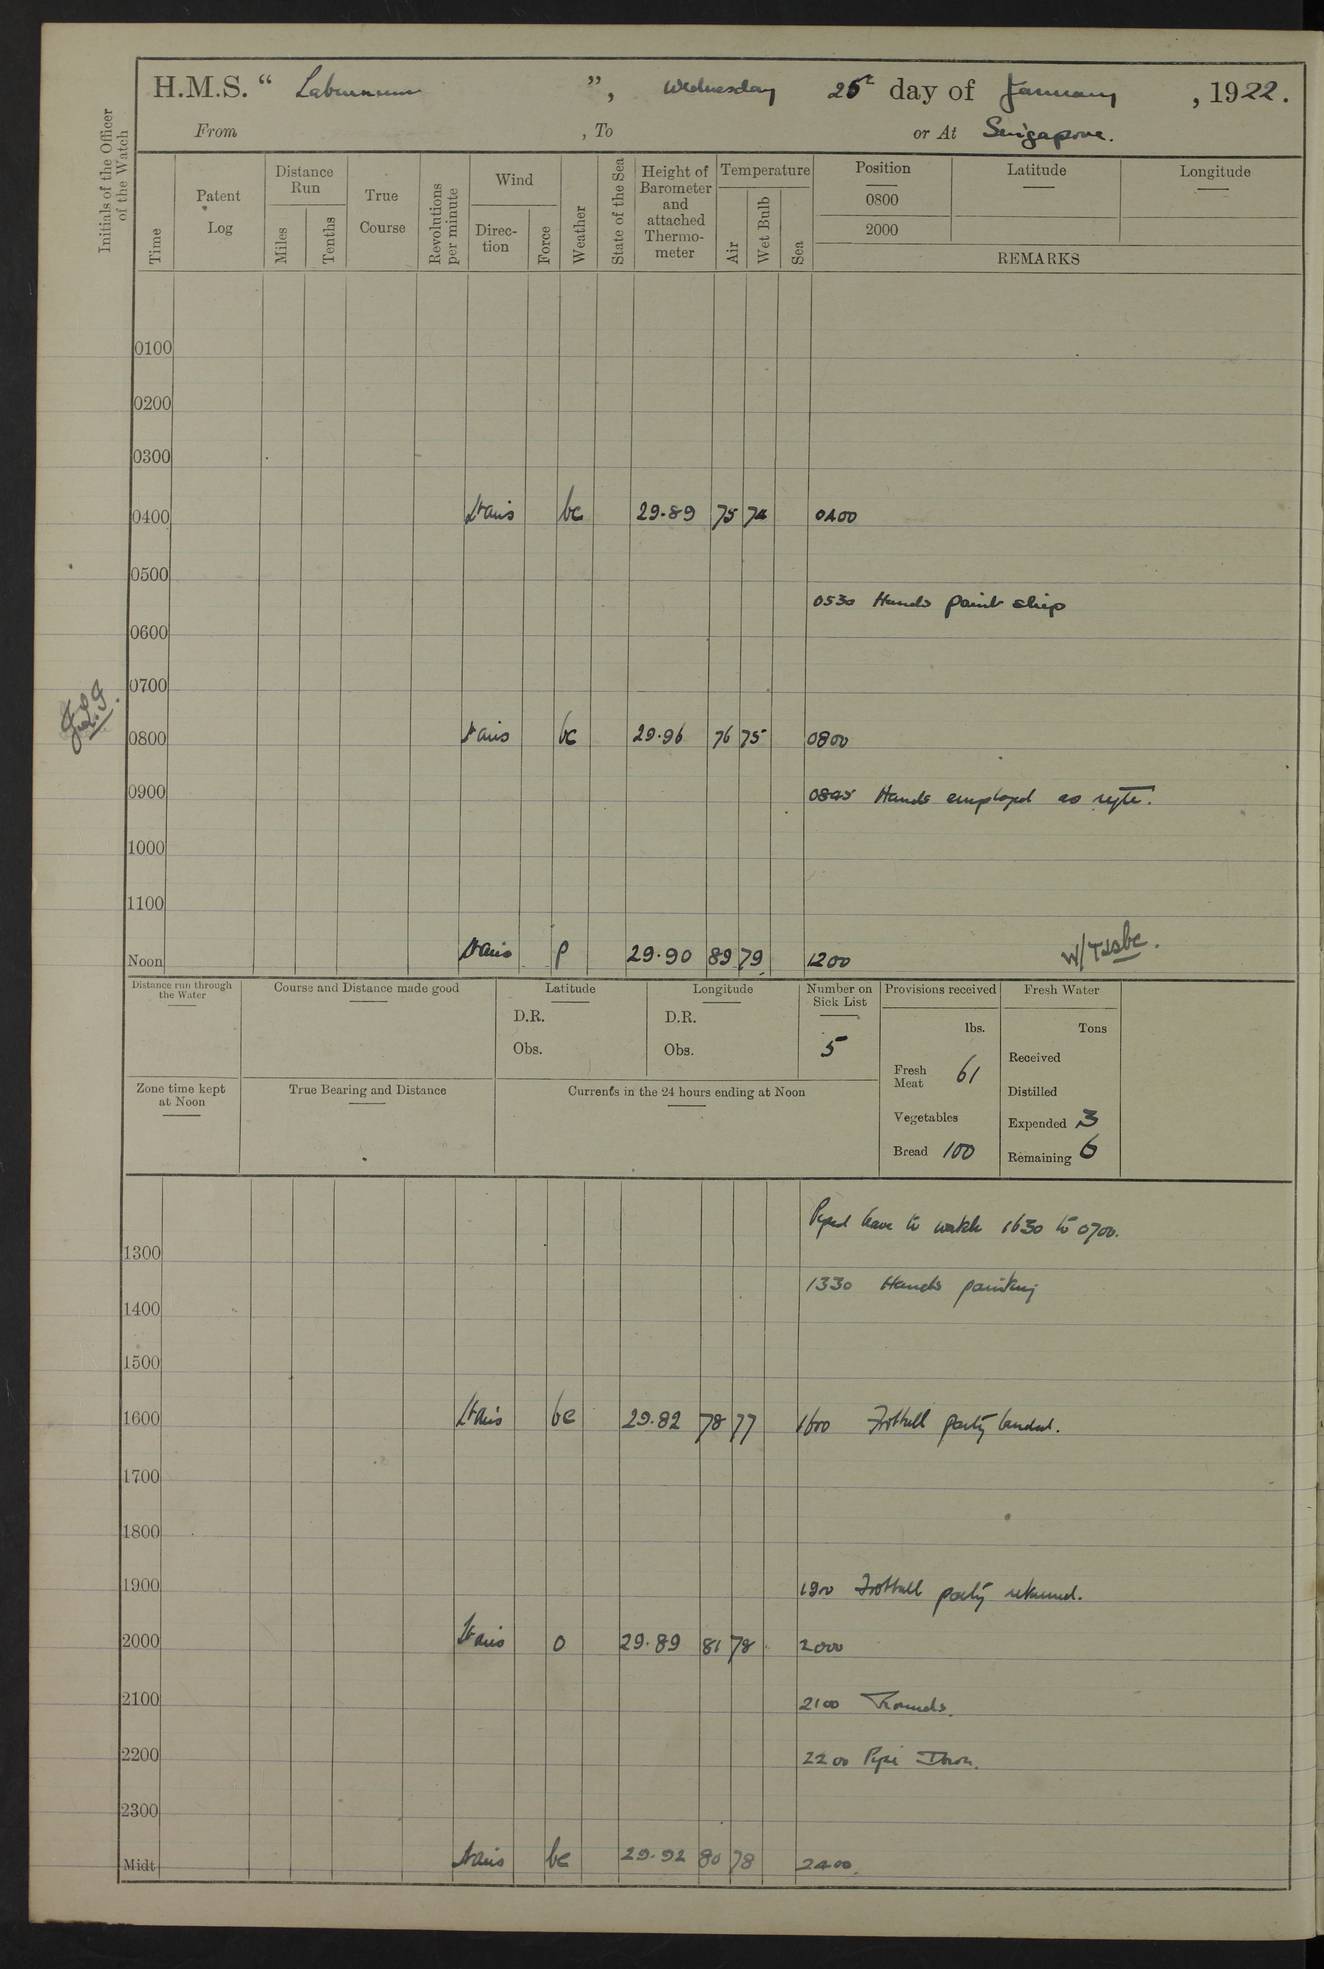 H.M.S. “ Laburnum ”, Wednesday 25th day of January, 1922.
From , To or At Singapore.
Initials of the Officer of the Watch
Time
Patent Log
Distance Run
Miles
Tenths
True Course
Revolutions per minute
Wind
Direction
Force
Weather
State of the Sea
Height of Barometer and attached Thermometer
Temperature
Air
Wet Bulb
Sea
Position Latitude Longitude
0800
2000
REMARKS
0100
0200
0300
0400 Lt airs bc 29.89 75 74 0400
0500
0530 Hands paint ship
0600
0700
0800 Lt airs bc 29.96 76 75 0800
0900 0845 Hands employed as reqte.
1000
1100
Noon Lt airs p 29.90 89 79 1200
Distance run through the Water
Course and Distance made good
Latitude
D.R.
Obs.
Longitude
D.R.
Obs.
Number on Sick List
5
Provisions received
lbs.
Fresh Meat 61
Vegetables
Bread 100
Fresh Water
Tons
Received
Distilled
Expended 3
Remaining 6
Zone time kept at Noon
True Bearing and Distance
Currents in the 24 hours ending at Noon
Piped leave to watch 1630 to 0700.
1300
1330 Hands painting
1400
1500
1600 Lt airs bc 29.82 78 77 1600 Football party landed.
1700
1800
1900 1900 Football party returned.
2000 Lt airs o 29.89 81 78 2000
2100 2100 Rounds.
2200 2200 Pipe Down.
2300
Midt Lt airs bc 29.92 80 78 2400.